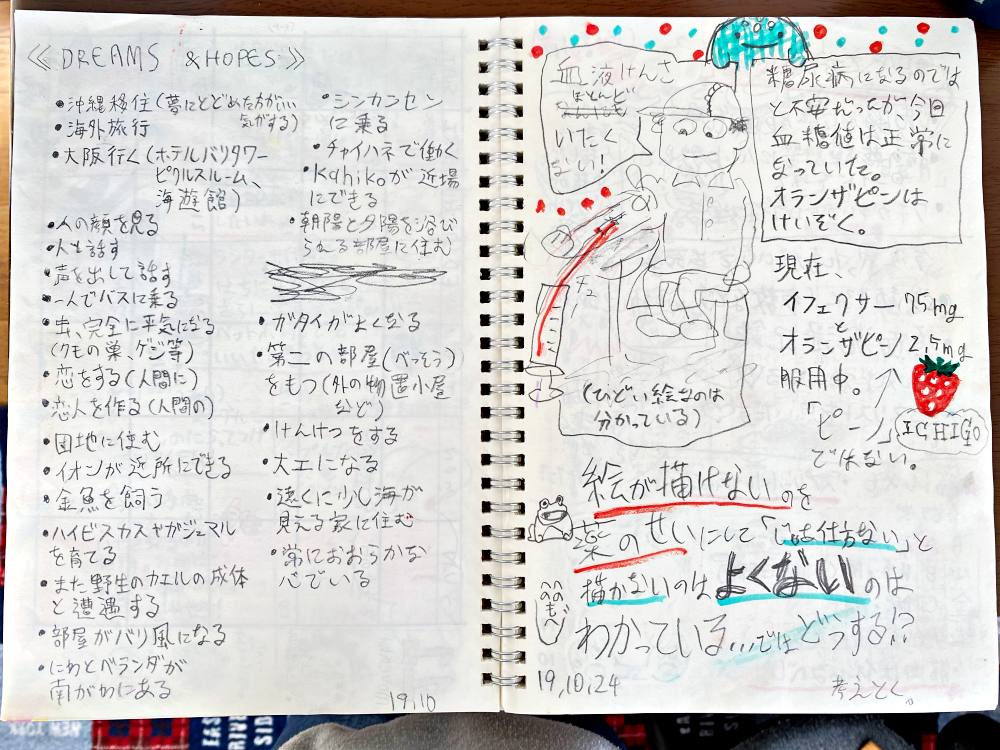 ≪DREAMS & HOPES≫
・沖縄移住(夢にとどめた方がいい
気がする)
・海外旅行
・大阪行く(ホテルバリタワー
ピクルスルーム、
海遊館)
・人の顔を見る
・人と話す
・声を出して話す
・一人でバスに乗る
・虫、完全に平気になる
(クモの巣、ゲジ等)
・恋をする(人間に)
・恋人を作る(人間の)
・団地に住む
・イオンが近所にできる
・金魚を飼う
・ハイビスカスやガジュマル
を育てる
・また野生のカエルの成体
と遭遇する
・部屋がバリ風になる
・にわとベランダが
南がわにある
・シンカンセン
に乗る
・チャイハネで働く
・Kahikoが近場
にできる
・朝陽と夕陽を浴び
られる部屋に住む
・ガタイがよくなる
・第二の部屋(べっそう)
をもつ(外の物置小屋
など)
・けんけつをする
・大工になる
・遠くに少し海が
見える家に住む
・常におおらかな
心でいる
19,10
血液けんさ
ほとんど
いたく
ない!
糖尿病になるのでは
と不安だったが、今回
血糖値は正常に
なっていた。
オランザピンは
けいぞく。
(ひどい絵なのは
分かっている)
現在、
イフェクサー 75mg
と
オランザピン 2.5mg
服用中。
「ピーン」
ではない。
ICHIGO
絵が描けないのを
薬のせいにして「じゃあ仕方ない」と
描かないのはよくないのは
わかっている…ではどうする!?
へのへのもへ
19,10,24
考えとく。